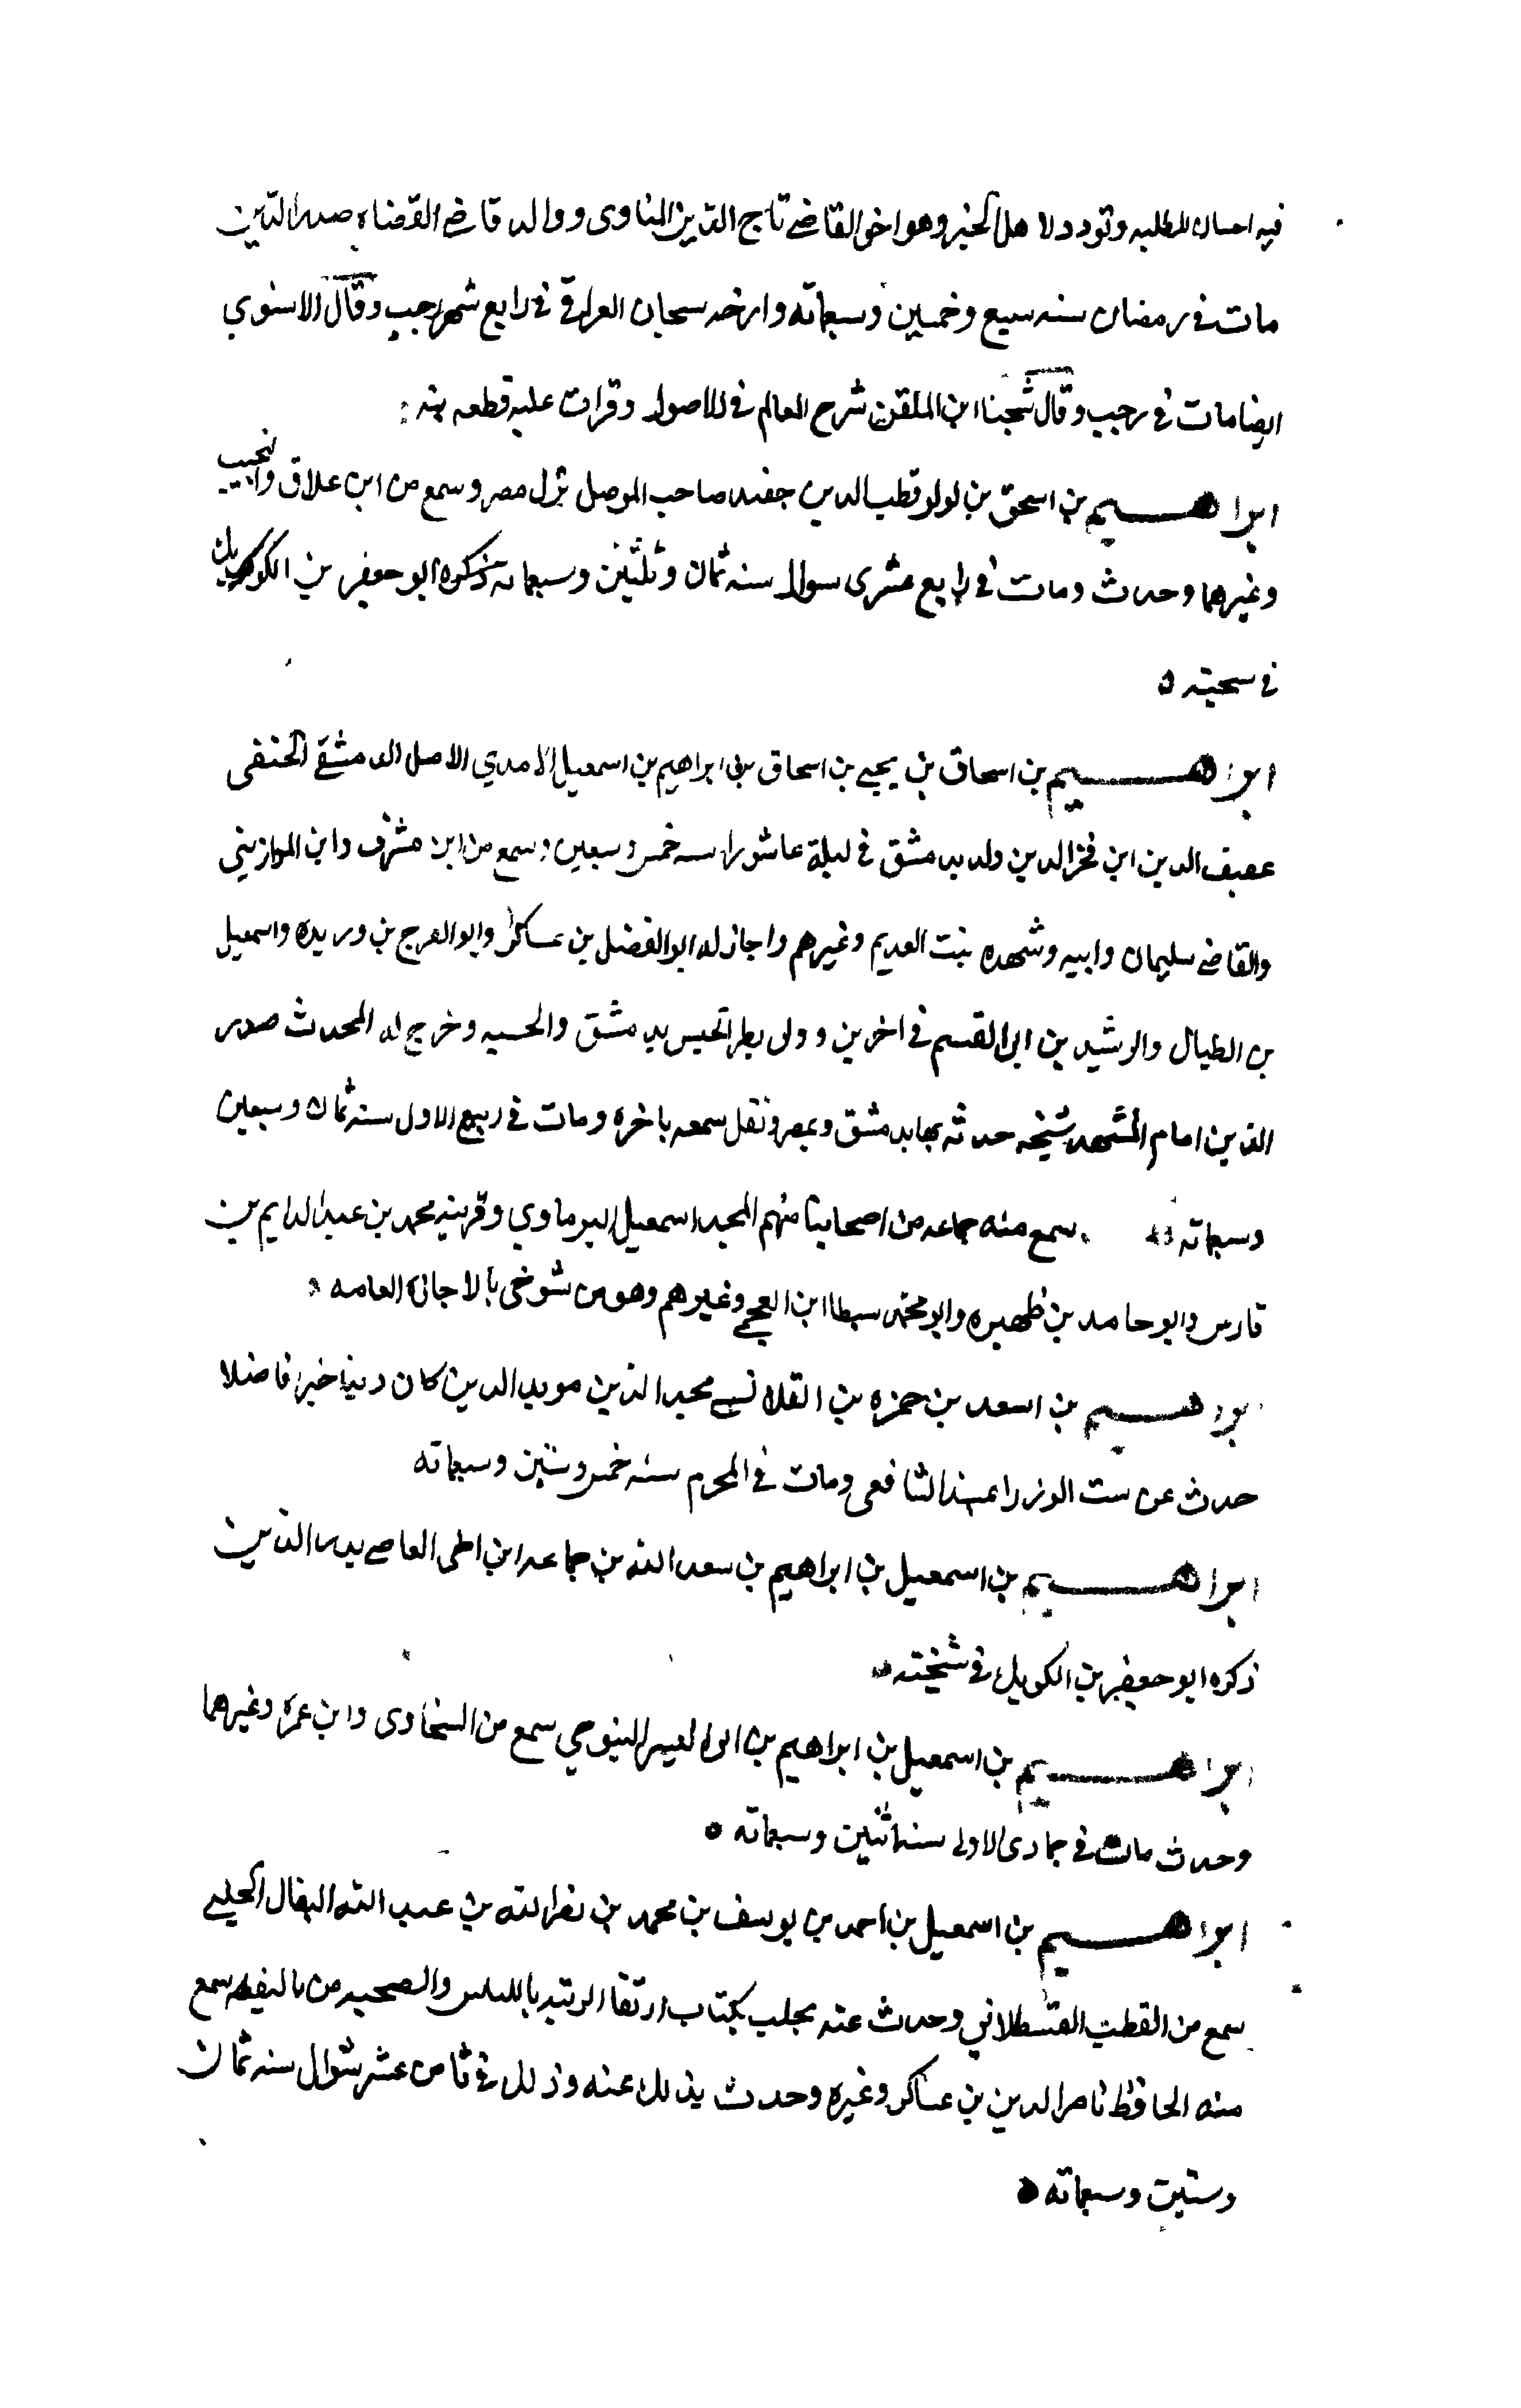 فيه احسان للطلبه وتودد لاهل الخير وهو اخو القاضي تاج الدين المناوى ووالد قاضى القضاه صدر الدين
مات فى رمضان سنه سبع وخمسين وسبعمائه وارخه سحان العراقى فى رابع شهر رجب وقال الاسنوي
ايضا مات فى رجب وقال شيخنا ابن الملقن شرح العالم فى الاصول وقرات عليه قطعه منه :
ابراهيم بن اسحق بن لولو قطب الدين حفيد صاحب الموصل نزل مصر وسمع من ابن علاق والنجيب
وغيرهما وحدث ومات فى رابع عشرى سوال سنه ثمان وثلثين وسبعمائه ذكره ابو جعفر بن الكويك
فى
ابراهيم بن اسحاق بن يحيى بن اسحاق بن ابراهيم بن اسمعيل الامدي الاصل الدمشقي الحنفى
عفيف الدين ابن فخر الدين ولد بدمشق فى ليلة عاشورا سنه خمس وسعين وسمع من ابن مشرف وابن الموازيني
والقاضي سليمان وابيه وشهده بنت العديم وغيرهم واجاز له ابو الفضل بن عساكر وابو الفرج بن وريده واسمعيل
بن الطبال والرشيد بن ابى القسم فى اخرين وولى نظر الجيس بدمشق والحسبه وخرج له المحدث صدر
الدين امام المشهد مشيخه حدثه بها بدمشق وبمصر ونقل سمعه باخره ومات فى ربيع الاول سنه ثمان وسبعين
وسبعمائه سمع منه جماعه من اصحابنا منهم المجد اسمعيل البرماوي وقرينه محمد بن عبد الدايم بن
فارس وابو حامد بن ظهيره وابو محمد سبط ابن العجمي وغيرهم وهو من شيوخى بالاجازه العامه
ابراهيم بن اسعد بن حمزه بن القلانسى مجد الدين مويد الدين كان دينا خيرا فاضلا
حدث عن ست الوزرا بمسند الشافعى ومات فى المحرم سنه خمس وستين وسبعمائه
ابراهيم بن اسمعيل بن ابراهيم بن سعد الله بن جماعه ابن اخى القاضي بدر الدين
ذكره ابو جعفر بن الكويك فى مشيخته
ابراهيم بن اسمعيل بن ابراهيم بن ابى اليسر التنوخي سمع من السخاوى وابن عمره وغيرهما
وحدث مات فى جمادى الاولى سنه اثنين وسبعمائه
ابراهيم بن اسمعيل بن احمد بن يوسف بن محمد بن نصر الله بن عبد الله البقال الحلبي
سمع من القطب القسطلاني وحدث عنه بحلب بكتاب ارتقا الرتبه باللباس والصحبه من تاليفه سمع
منه الحافظ ناصر الدين بن عساكر وغيره وحدث بذلك عنه وذلك فى ثامن عشر شوال سنه ثمان
وستين وسبعمائه